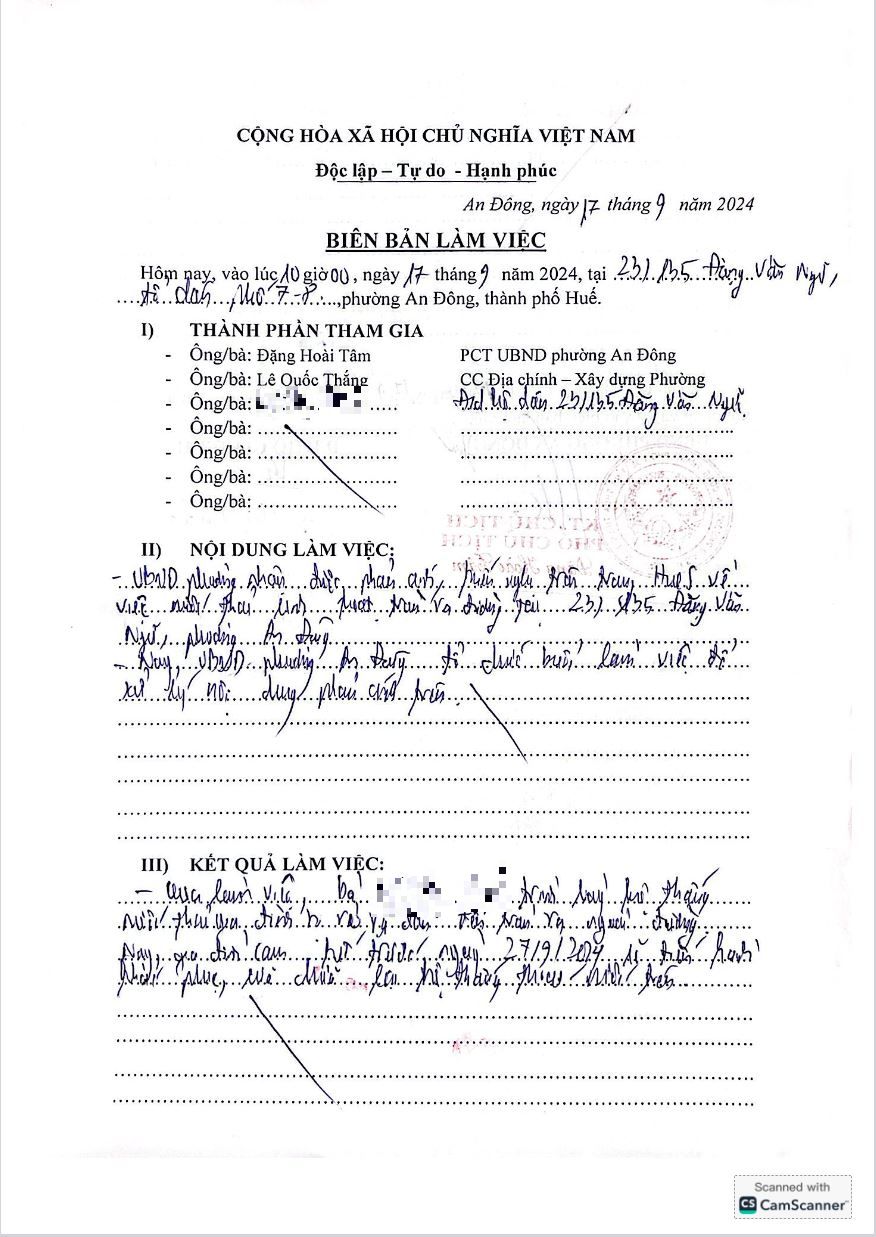 CỘNG HÒA XÃ HỘI CHỦ NGHĨA VIỆT NAM
Độc lập – Tự do - Hạnh phúc
An Đông, ngày 17 tháng 9 năm 2024
BIÊN BẢN LÀM VIỆC
Hôm nay, vào lúc 10 giờ 00, ngày 17 tháng 9 năm 2024, tại 23/135 Đặng Văn Ngữ,
tổ dân phố 7-8, phường An Đông, thành phố Huế.
I) THÀNH PHẦN THAM GIA
- Ông/bà: Đặng Hoài Tâm PCT UBND phường An Đông
- Ông/bà: Lê Quốc Thắng CC Địa chính – Xây dựng Phường
- Ông/bà: hộ dân 23/135 Đặng Văn Ngữ
- Ông/bà:
- Ông/bà:
- Ông/bà:
- Ông/bà:
KT. CHỦ TỊCH
PHÓ CHỦ TỊCH
II) NỘI DUNG LÀM VIỆC:
- UBND phường nhận được phản ánh, kiến nghị trên trang Hue-S về
việc nước thải sinh hoạt tràn ra đường tại 23/135 Đặng Văn
Ngữ, phường An Đông
- Nay, UBND phường An Đông tổ chức buổi làm việc để
xử lý nội dung phản ánh trên.
III) KẾT QUẢ LÀM VIỆC:
- Qua làm việc, bà trình bày hệ thống
nước thải gia đình bị tràn ra ngoài đường.
Nay, gia đình cam kết trước ngày 27/9/2024 sẽ tiến hành
khắc phục, sửa chữa lại hệ thống nước trên
Scanned with
CS CamScanner